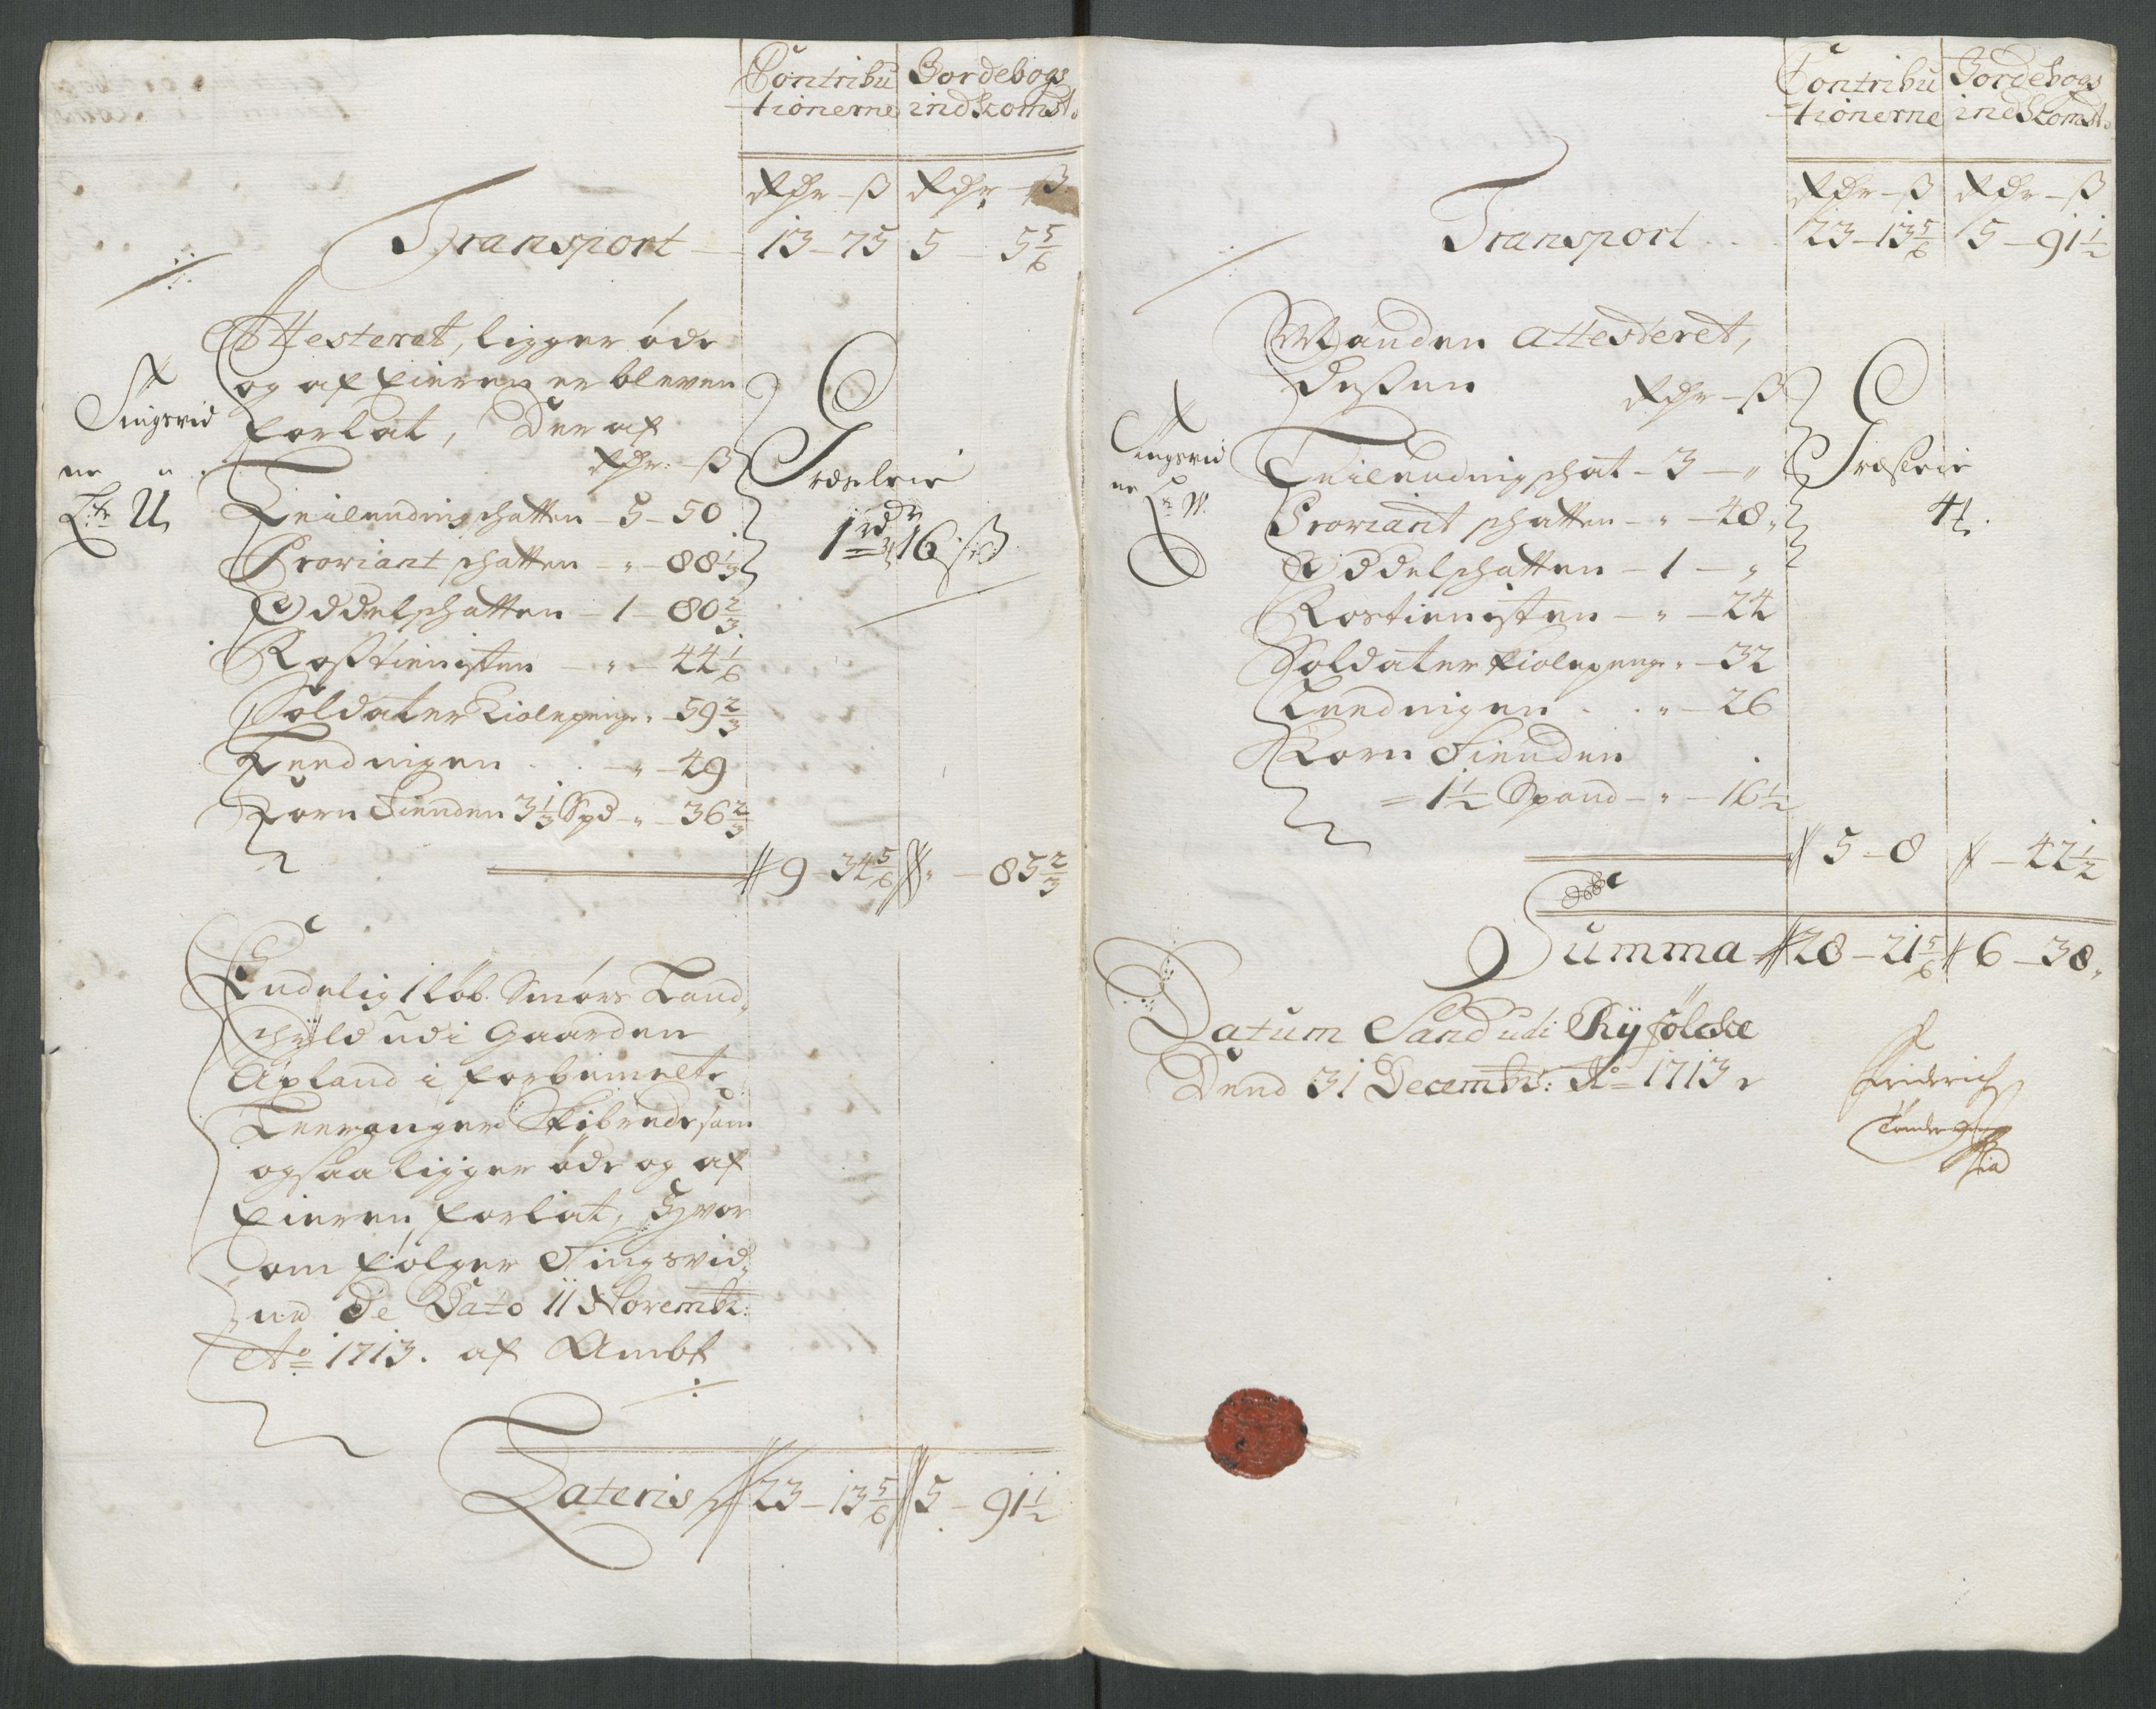 Contribu Jordebogs
tionerne indkomst.
Rdr – ß Rdr – ß
Transport – 13 – 75 5 – 5 5/6
Attesteret, ligger öde
og af Eieren er bleven
forlat, Der af
Rdr: – ß
Tingsvid
ne
Ltr U
Leilendingschatten – 5 – 50
Proviant schatten – " – 88 1/3
Oddelschatten – 1 – 80 2/3
Rostienisten – " – 44 1/6
Soldater Kiolepenge " – 59 2/3
Leedningen – " – 49
Korn Tienden 3 1/3 Spd – " – 36 2/3
Græsleie
1 rdr 16 ß
9 – 34 5/6 " – 85 2/3
Endelig 1 löb. Smörs Land
schÿld udi Gaarden
Apland i forbemelte
Leeranger Skibrede som
ogsaa ligger öde og af
Eieren forlat, Hvor
om fölger Tingsvid
ne De Dato 11 Novembr:
Ao 1713. af Ambt
Lateris 23 – 13 5/6 5 – 91 1/2
Contribu Jordebogs
tionerne indkomst.
Rdr – ß Rdr – ß
Transport . . 23 – 13 5/6 5 – 91 1/2
Manden attesteret,
Dessen Rdr – ß
Tingsvid
ne Lr W.
Leilendingschat – 3 – "
Proviant schatten – " – 48 "
Oddelschatten – 1 – "
Rostienisten – " – 24
Soldater Kiolepenge " – 32
Leedningen . . " – 26
Korn Tienden
= 1 1/2 Spand – " – 16 1/2
Græsleie
4.
5 – 8 – 42 1/2
Summa 28 – 21 5/6 6 – 38 "
Datum Sand udi Rÿfölcke
Dend 31 Decembr: Ao 1713
Friderich